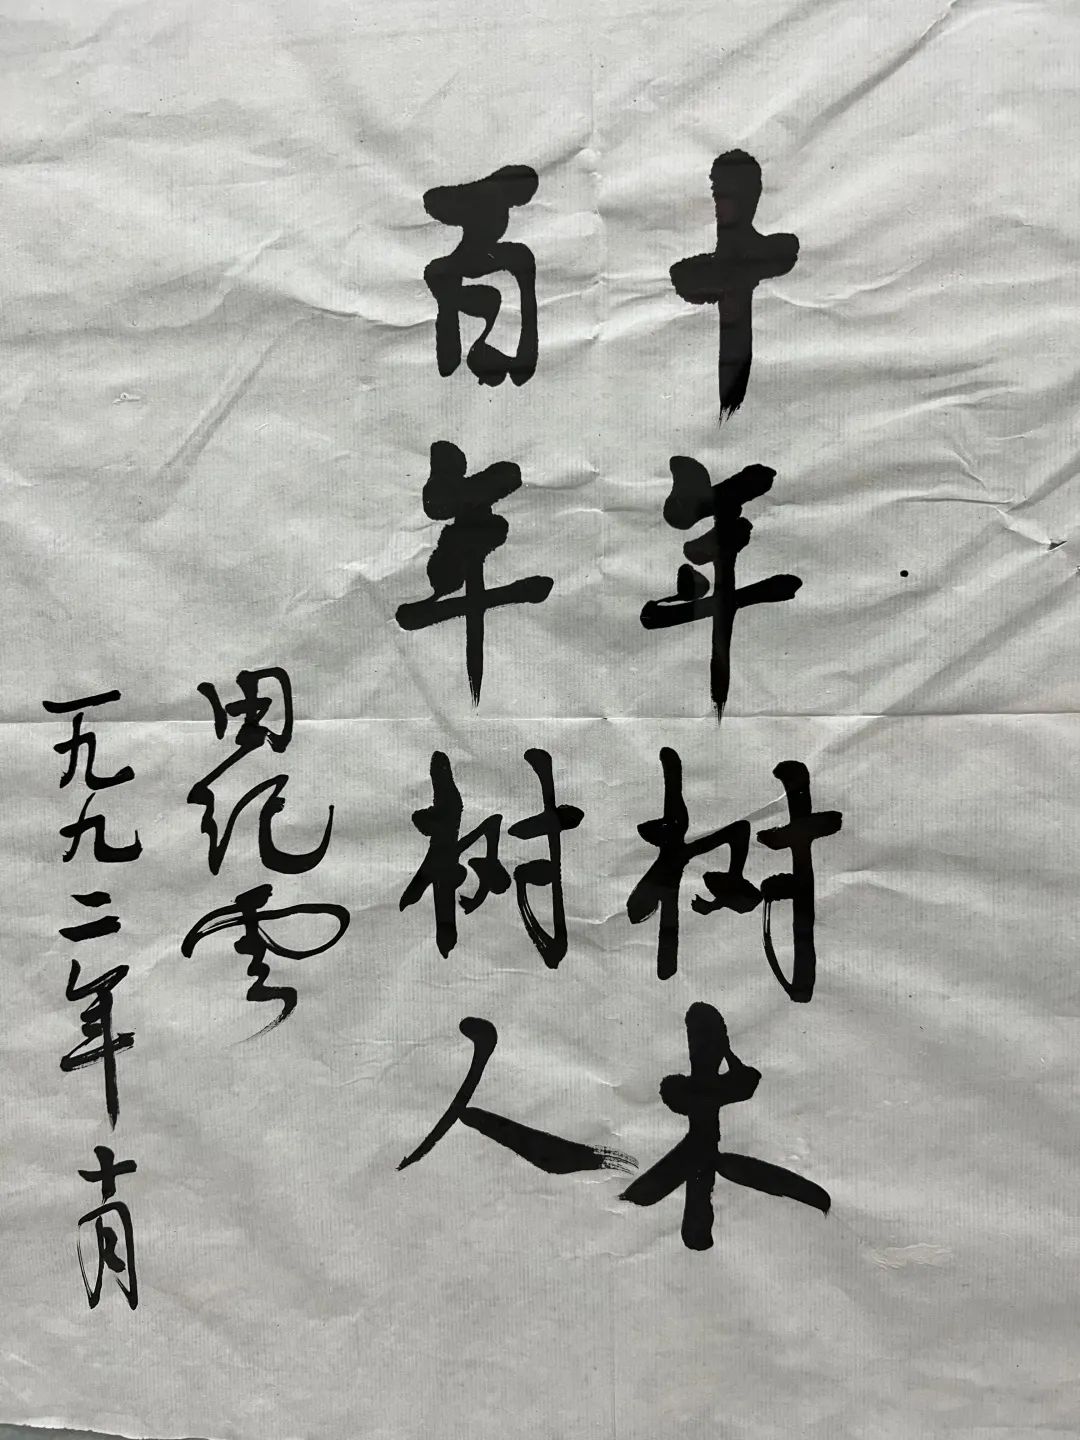 十年树木
百年树人
田纪雲
一九九二年十月